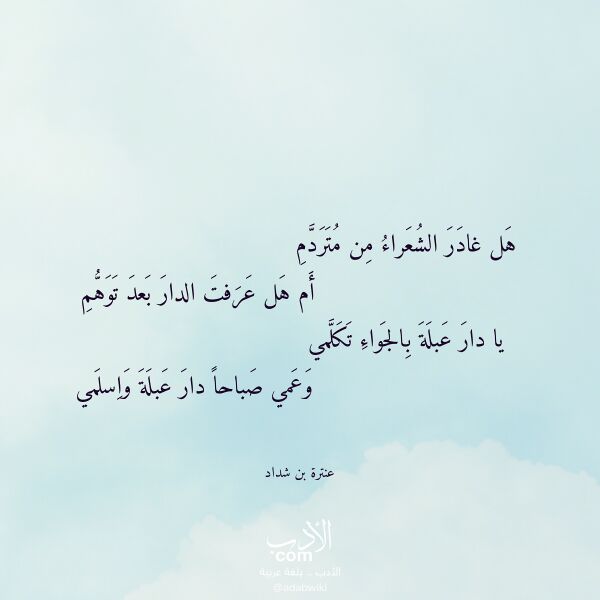 هَل غادَرَ الشُعَراءُ مِن مُتَرَدَّمِ
أَم هَل عَرَفتَ الدارَ بَعدَ تَوَهُّمِ
يا دارَ عَبلَةَ بِالجَواءِ تَكَلَّمي
وَعَمي صَباحاً دارَ عَبلَةَ وَاِسلَمي
عنترة بن شداد
الأدب
com
الأدب .. بلغة عربية
@adabwiki